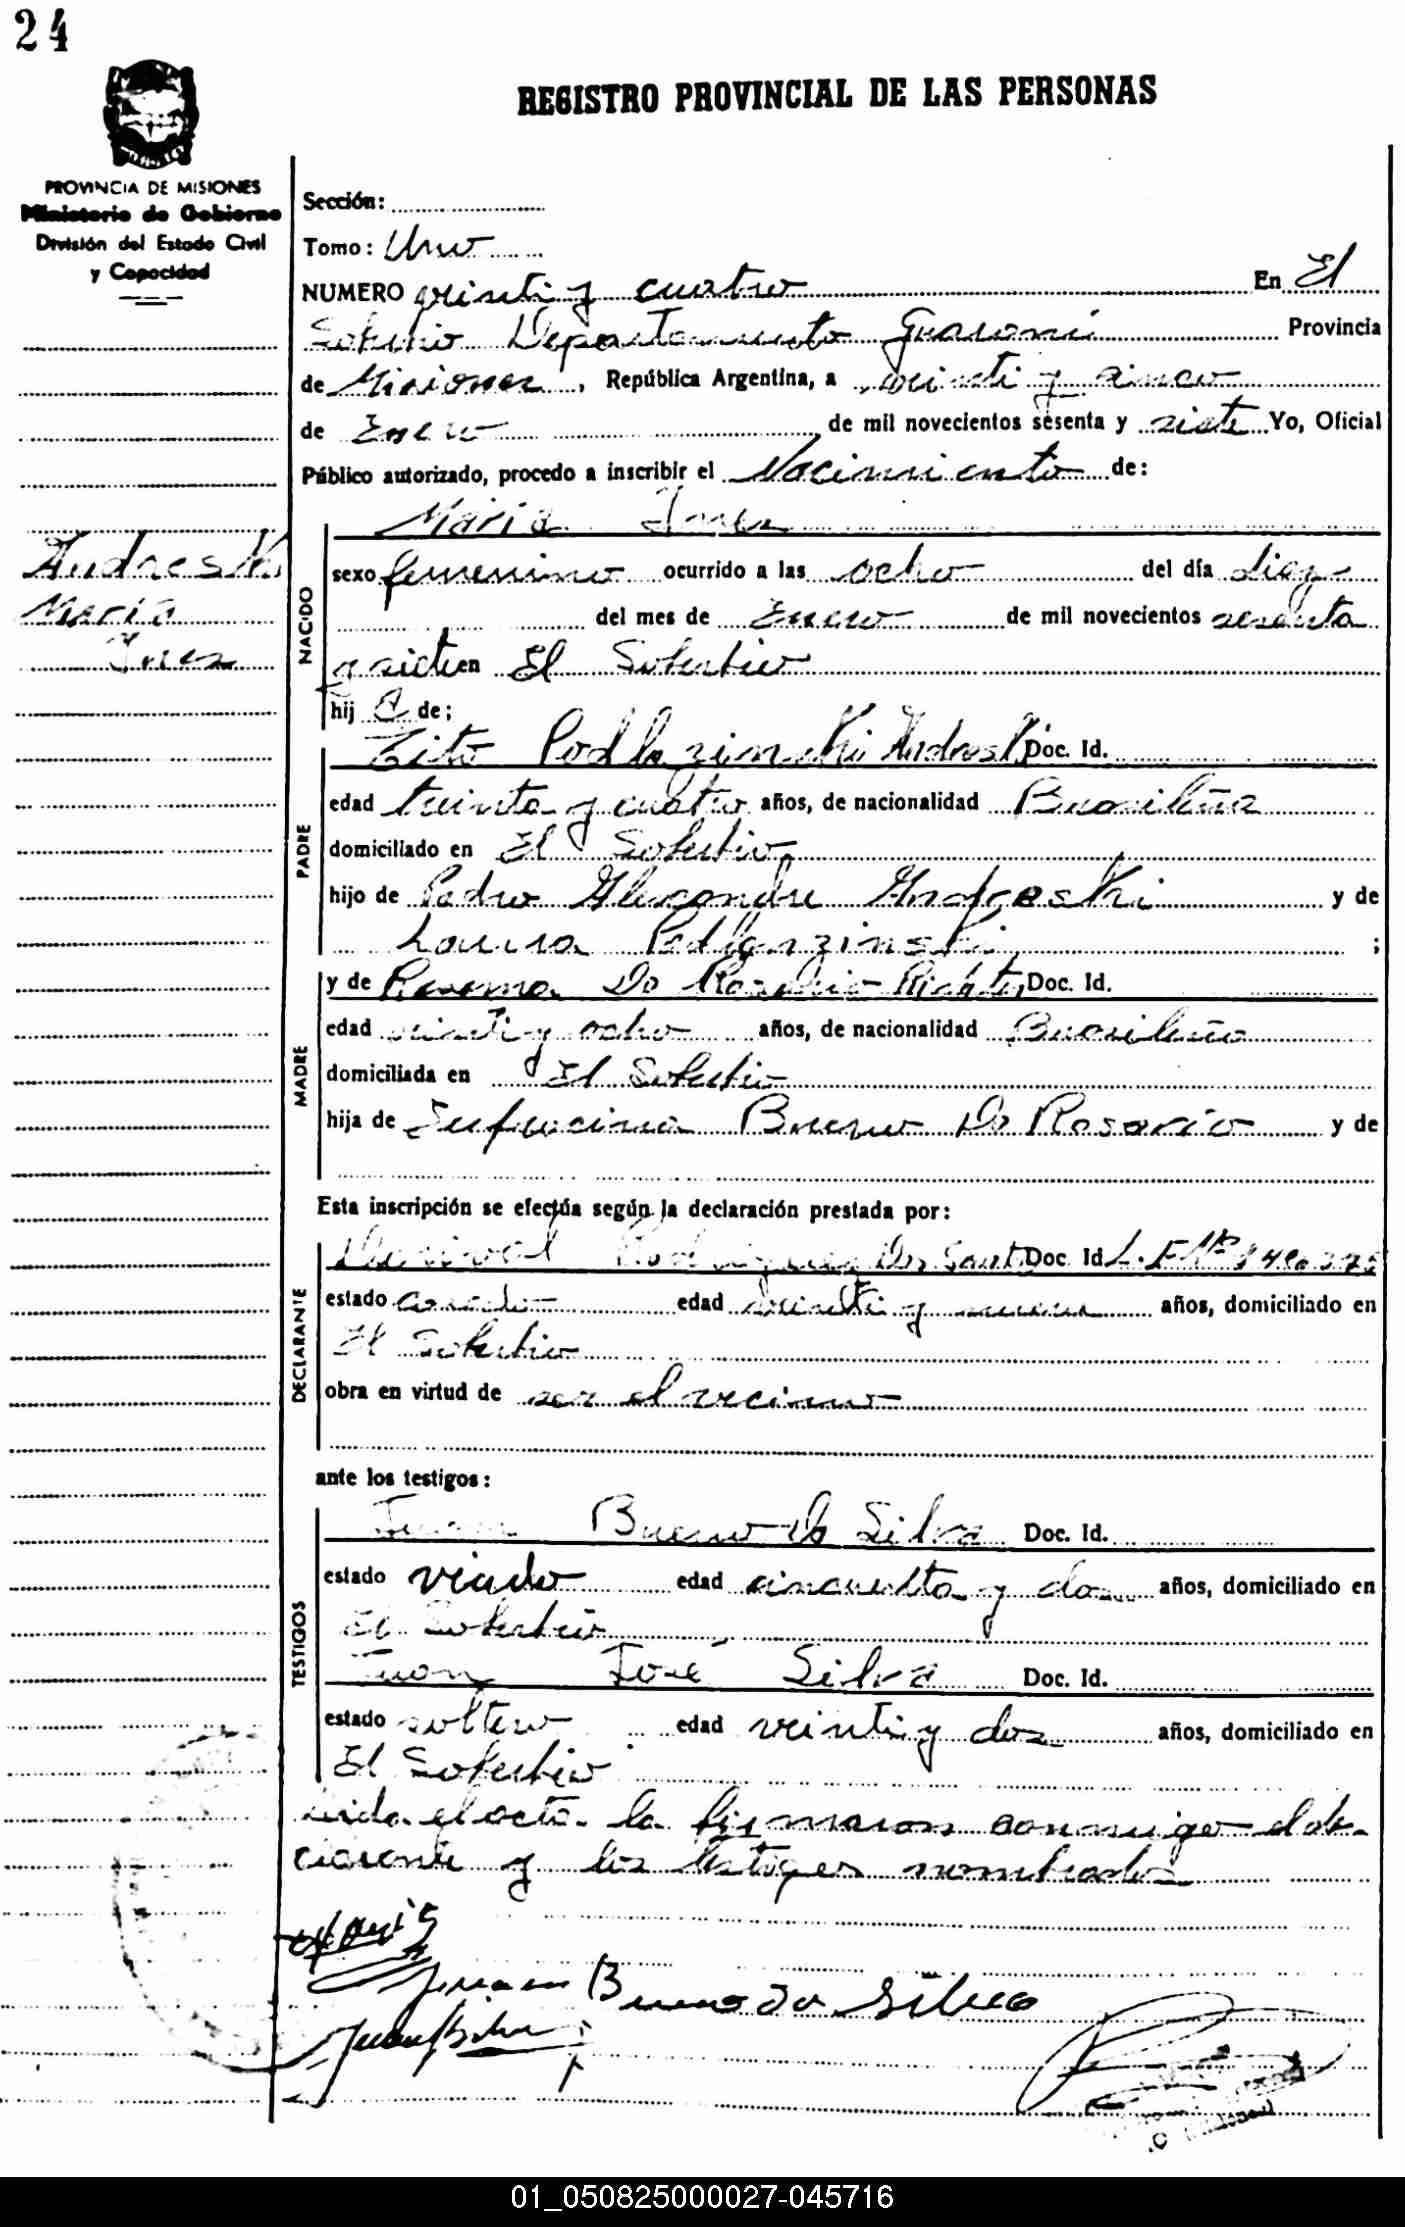 24
REGISTRO PROVINCIAL DE LAS PERSONAS
PROVINCIA DE MISIONES
Ministerio de Gobierno
División del Estado Civil
y Capacidad
Andreski
Maria
Ines
Sección:
Tomo: Uno
NUMERO veinti y cuatro En El
Soberbio Departamento Guaraní Provincia
de Misiones, República Argentina, a veinti y cinco
de Enero de mil novecientos sesenta y siete Yo, Oficial
Público autorizado, procedo a inscribir el Nacimiento de:
Maria Ines
NACIDO
sexo femenino ocurrido a las ocho del día diez
del mes de Enero de mil novecientos sesenta
y siete en El Soberbio
hij a de;
PADRE
Tito Andreski Doc. Id.
edad treinta y cuatro años, de nacionalidad Brasileña
domiciliado en El Soberbio
hijo de Pedro Alexandre Andreski y de
Laura ;
MADRE
y de Do Rosario Doc. Id.
edad veinti y ocho años, de nacionalidad Brasileña
domiciliada en El Soberbio
hija de Bueno Do Rosario y de
Esta inscripción se efectúa según la declaración prestada por:
DECLARANTE
Rodriguez Dos Santo Doc. Id L.E Nº
estado casado edad veinti y nueve años, domiciliado en
El Soberbio
obra en virtud de ser el vecino
ante los testigos:
TESTIGOS
Juan Bueno da Silva Doc. Id.
estado viudo edad cincuenta y dos años, domiciliado en
El Soberbio
Juan José Silva Doc. Id.
estado soltero edad veinti y dos años, domiciliado en
El Soberbio
leida el acta la firmaron conmigo el de-
clarante y los testigos nombrados
Bueno da Silva
01_050825000027-045716